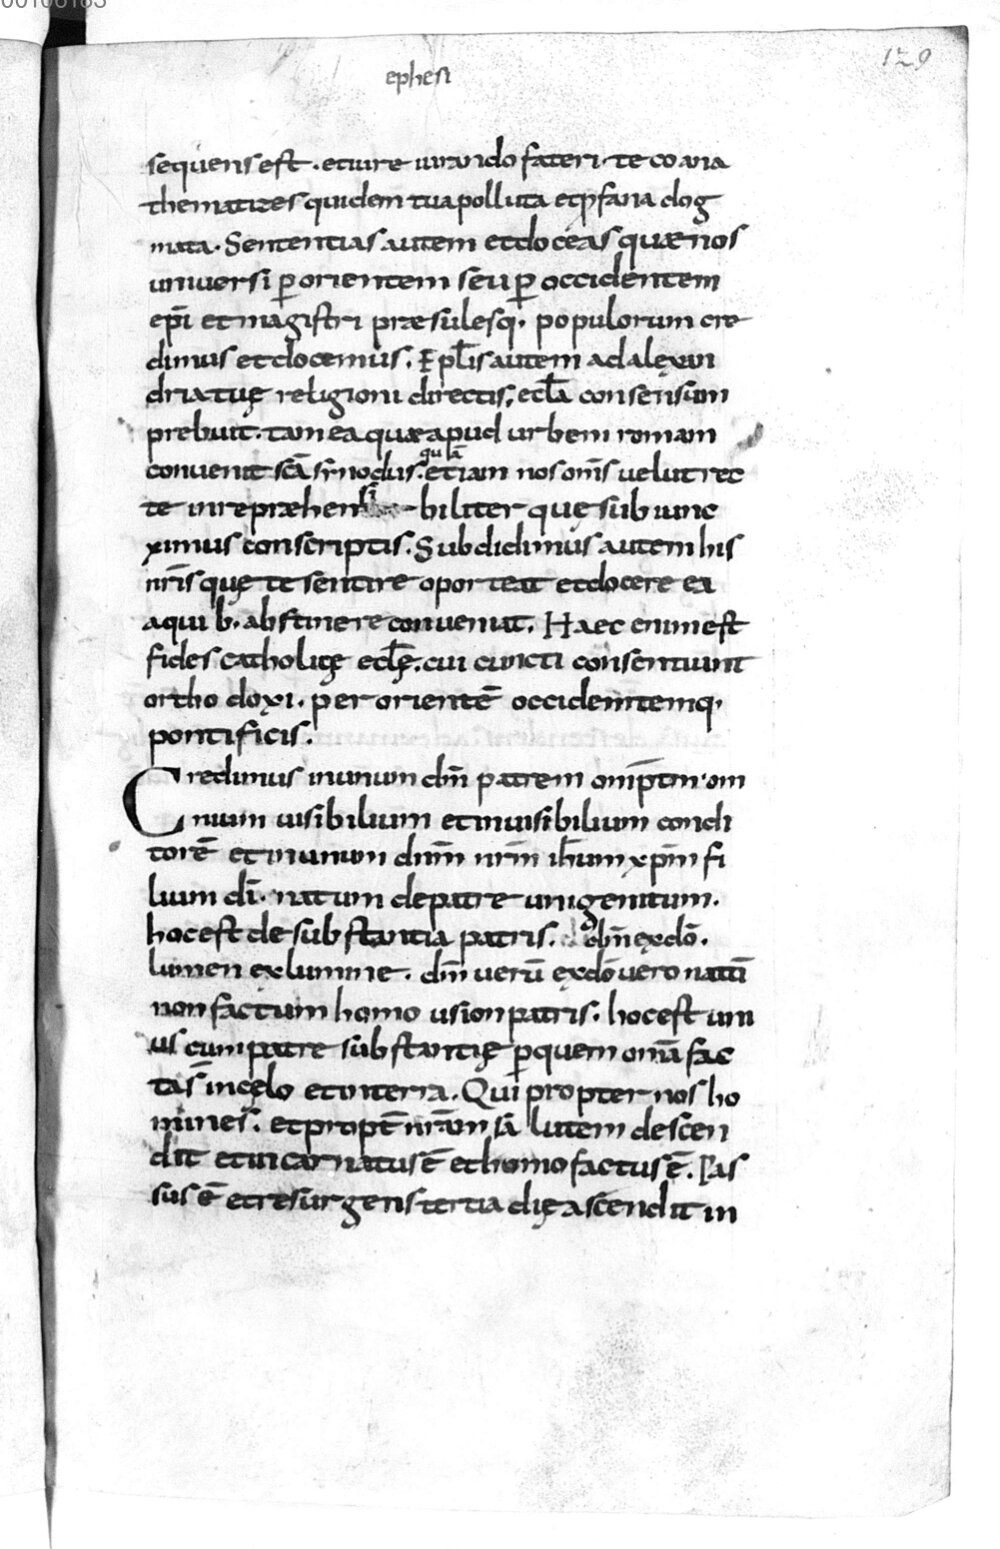 00106183
129
ephesi
sequens est . et iure iurando fateri . te co ana
thematizes quidem tua polluta et ꝓfana dog
mata . Sententias autem et doceas quæ nos
universi ꝑ orientem seu ꝑ occidentem
ep̄i et magistri præsulesq· populorum cre
dimus et docemus . Epl̄is autem ad alexan
driatuę religioni directis, eccl̄a consensum
prebuit . tam ea quæ apud urbem romam
quīa
convenit sc̄a synodus . etiam nos om̄s velut rec
te inrepræhensi biliter que subiunc
ximus conscriptis . Subdidimus autem his
nr̄is quę te sentire oporteat et docere ea
a quib· abstinere convenit . Haec enim est
fides catholicę eccl̄ę . cui cuncti consentiunt
orthodoxi . per orientē occidentemq·
pontificis .
Credimus in unum dm̄ patrem omip̄tm · om
nium visibilium et invisibilium condi
torē et in unum dnm̄ nr̄m ih̄um xp̄m fi
lium dī . natum de patre unigenitum .
hoc est de substantia patris . dm̄ exdō .
lumen ex lumine . dm̄ verū ex dō vero natū
non factum homousion patris . hoc est uni
us cum patre substantię ꝑ quem omīa fac
ta s̄ in cęlo et in terra . Qui propter nos ho
mines . et propt̄ nr̄am salutem descen
dit et incarnatus ē et homo factus ē . Pas
sus ē et resurgens tertia die ascendit in